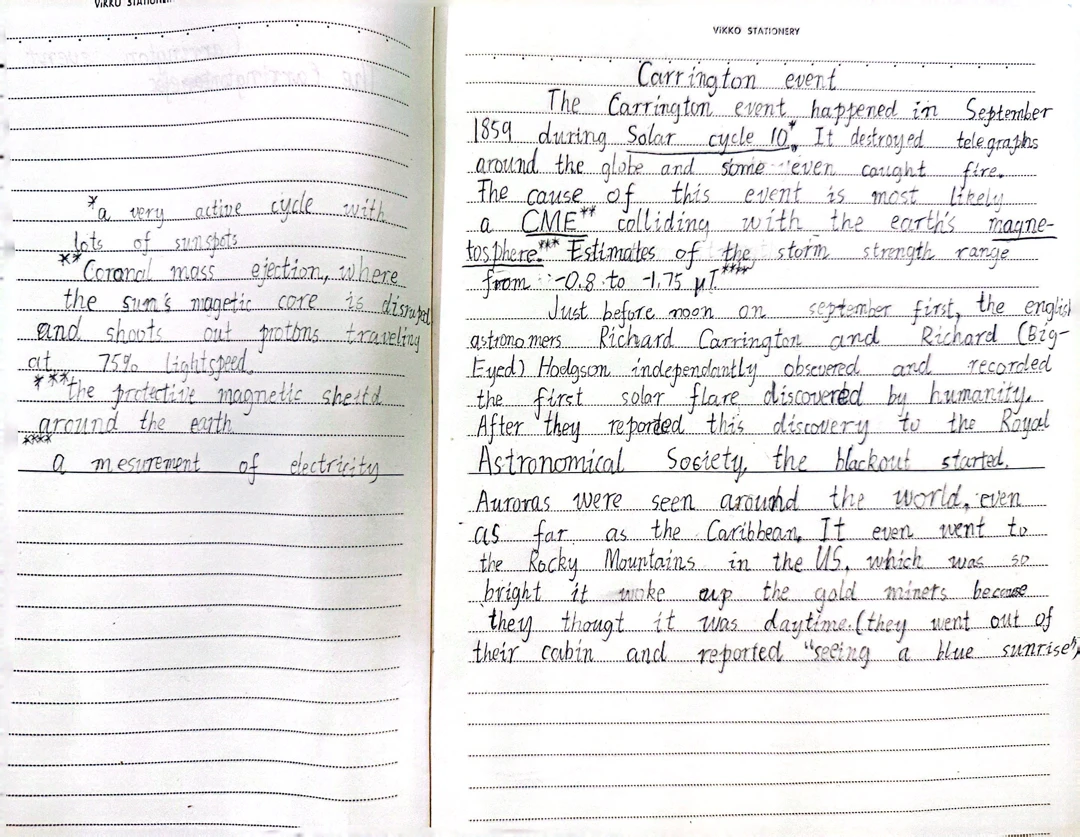 VIKKO STATIONERY
*a very active cycle with
lots of sunspots
**Coronal mass ejection, where
the sun's magetic core is disruped
and shoots out protons traveling
at 75% lightspeed.
***the protective magnetic sheild
around the earth
****
a mesurement of electricity
VIKKO STATIONERY
Carrington event
The Carrington event happened in September
1859 during Solar cycle 10*. It destroyed telegraphs
around the globe and some even caught fire.
The cause of this event is most likely
a CME** colliding with the earth's magne-
tosphere.*** Estimates of the storm strength range
from -0.8 to -1.75 µT.****
Just before noon on september first, the english
astronomers Richard Carrington and Richard (Big-
Eyed) Hodgson independantly obsevered and recorded
the first solar flare discovered by humanity.
After they reported this discovery to the Royal
Astronomical Society, the blackout started.
Auroras were seen around the world, even
as far as the Caribbean. It even went to
the Rocky Mountains in the US, which was so
bright it woke up the gold miners because
they thougt it was daytime.(they went out of
their cabin and reported "seeing a blue sunrise")